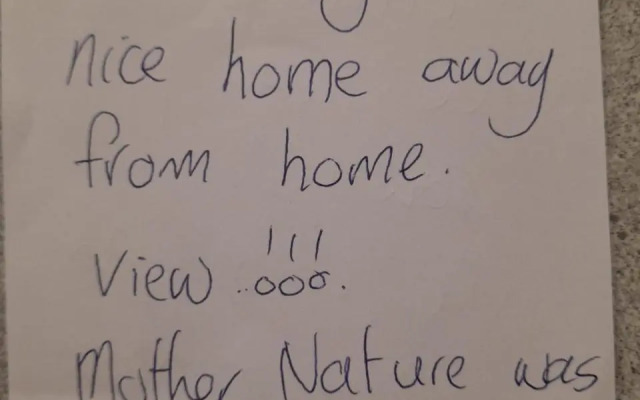 nice home away
from home.
View ..!!!.
Mother Nature was